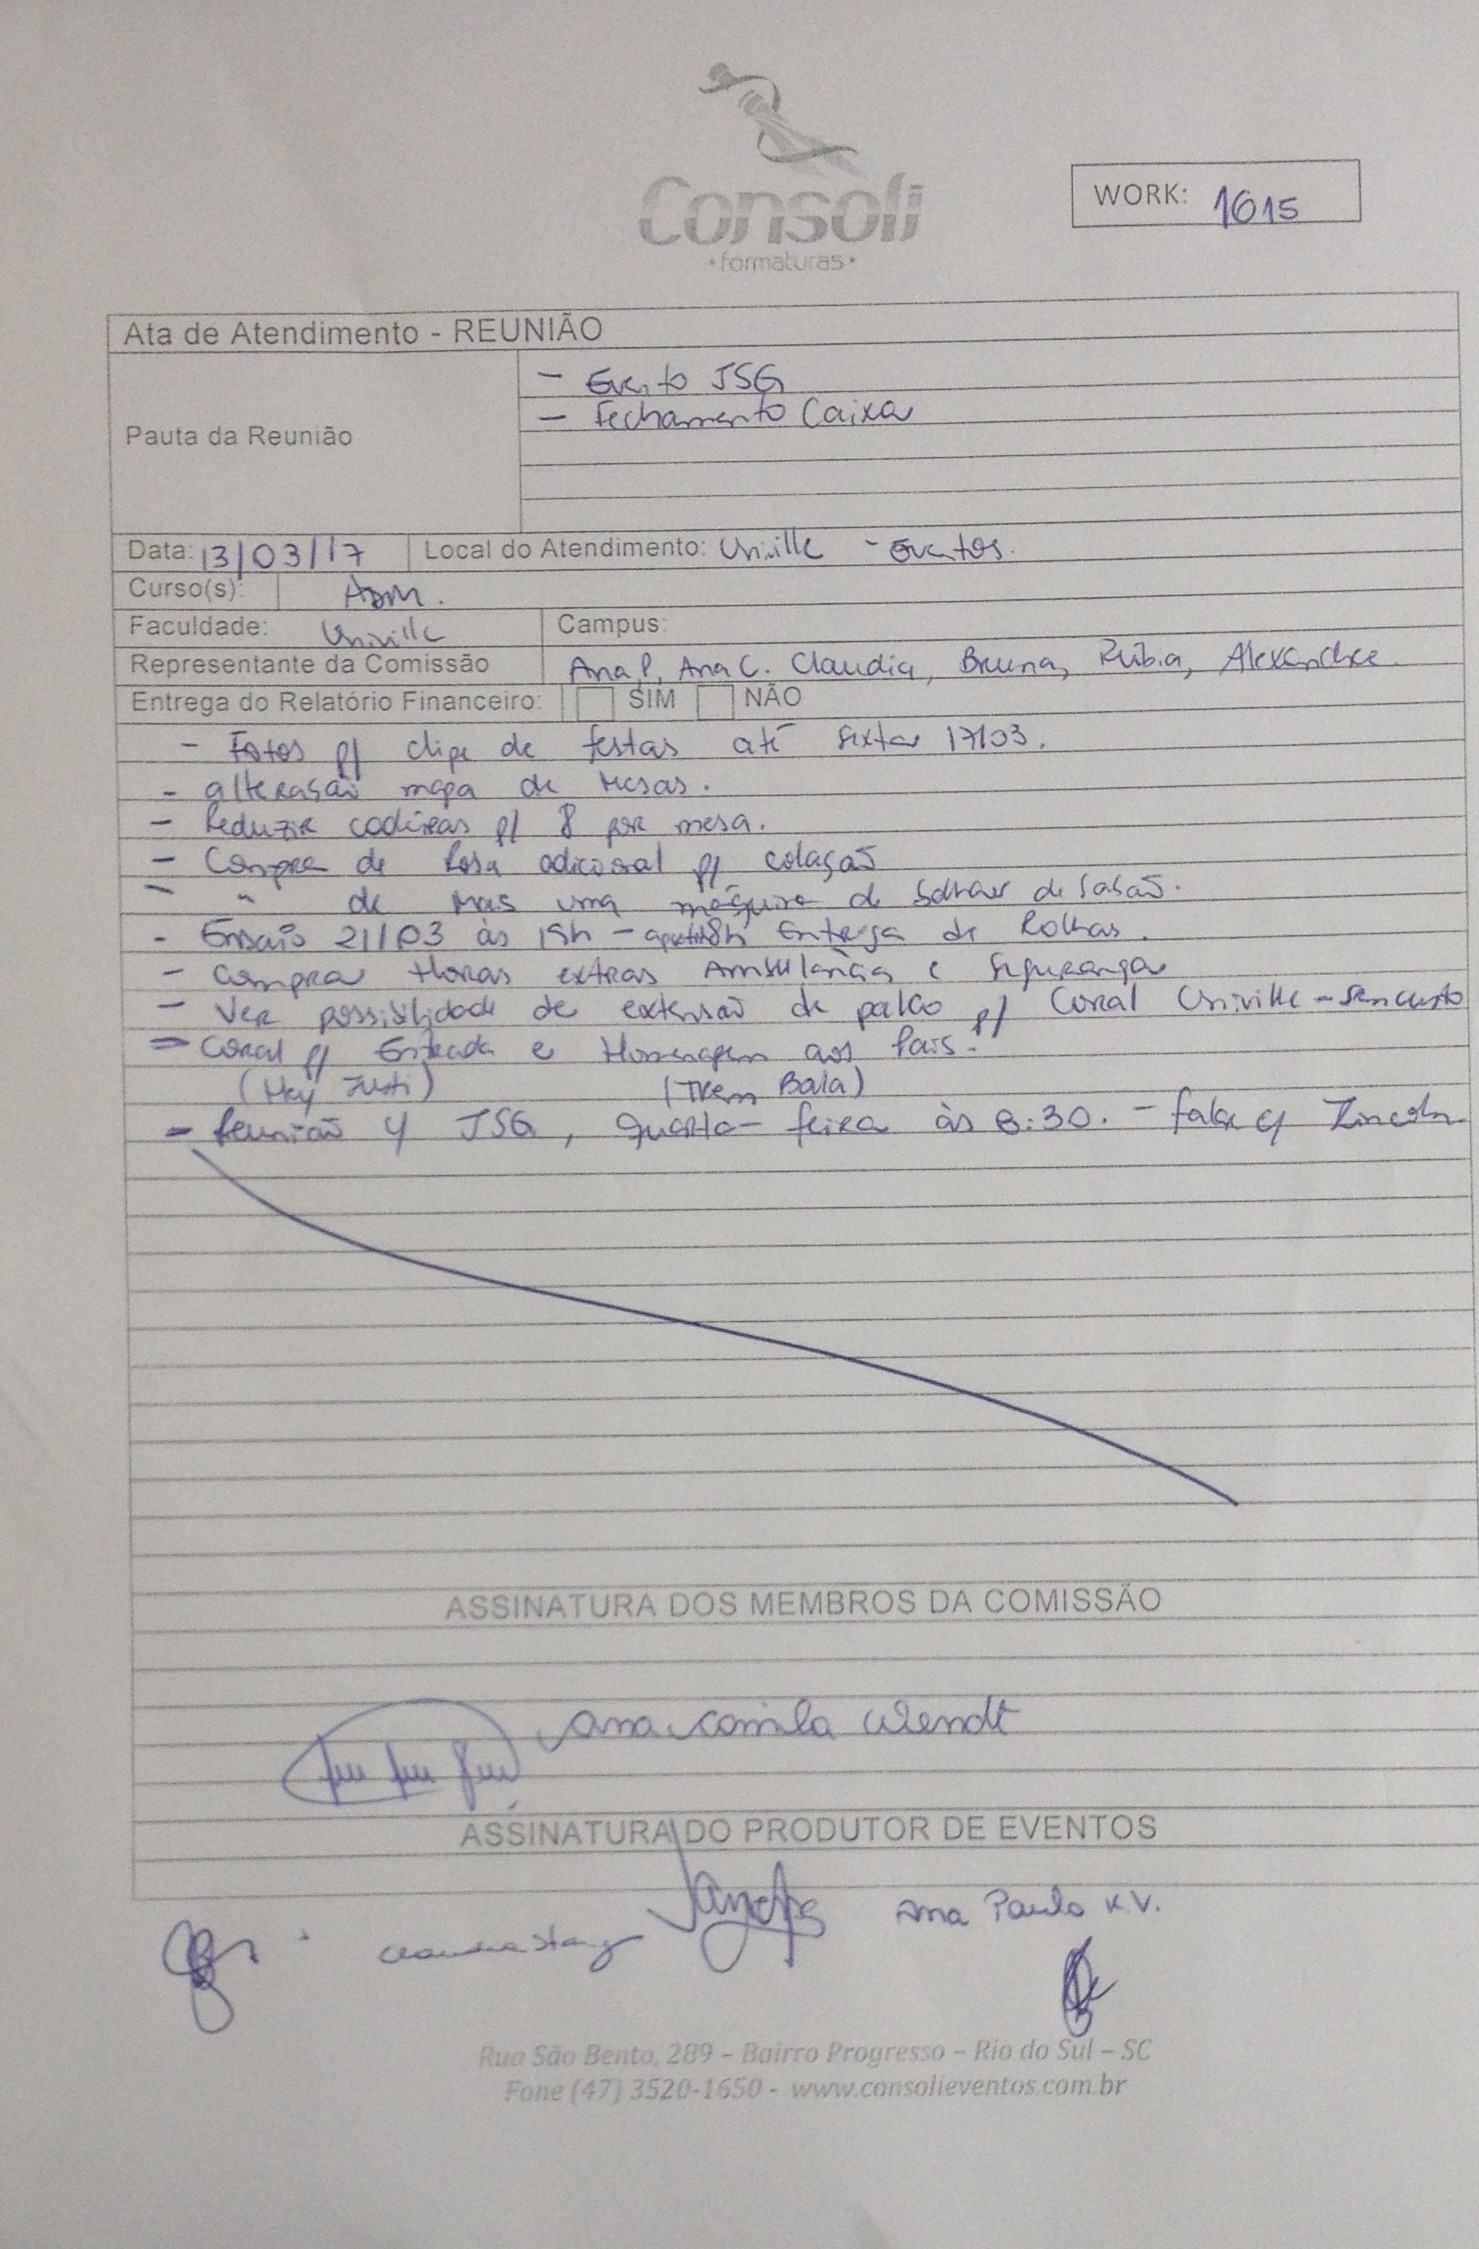 Consoli
• formaturas •
WORK: 1615
Ata de Atendimento - REUNIÃO
Pauta da Reunião
- Evento JSG
- Fechamento Caixa
Data: 13/03/17 Local do Atendimento: Univille - Eventos.
Curso(s): Adm.
Faculdade: Univille Campus:
Representante da Comissão Ana P, Ana C. Claudia, Bruna, Rúbia, Alexandre.
Entrega do Relatório Financeiro: SIM NÃO
- Fotos p/ clipe de festas até sexta 17/03.
- alterasão mapa de mesas.
- Reduzir cadeiras p/ 8 por mesa.
- Compra de Rosa adicional p/ colação
- " de mais uma máquina de bolhas de sabão.
- Ensaio 21/03 às 19h - Entrega de Rolhas.
- compra Horas extras Ambulância e segurança
- Ver possibilidade de extensão de palco p/ Coral Univille - sem custo
- Coral p/ Entrada e Homenagem aos Pais.
(Trem Bala)
- Reunião c/ JSG, quarta-feira às 8:30. - falar c/ Lincoln
ASSINATURA DOS MEMBROS DA COMISSÃO
Ana Camila Wendt
ASSINATURA DO PRODUTOR DE EVENTOS
Ana Paula K.V.
Rua São Bento, 289 – Bairro Progresso – Rio do Sul – SC
Fone (47) 3520-1650 - www.consolieventos.com.br